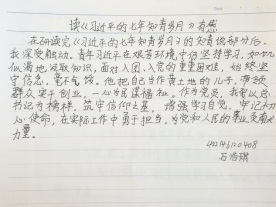 读《习近平的七年知青岁月》有感
在研读完《习近平的七年知青岁月》的知青说部分后，
我深受触动。青年习近平在艰苦环境中仍坚持学习，如饥
似渴地汲取知识，面对入团、入党的重重困难，始终坚
守信念，毫不气馁。他把自己当作黄土地的儿子，带领
群众实干创业，一心为民谋福祉。作为党员，我要以总
书记为榜样，筑牢信仰之基，增强学习自觉，牢记初
心使命，在实际工作中勇于担当，为党和人民的事业贡献
力量。